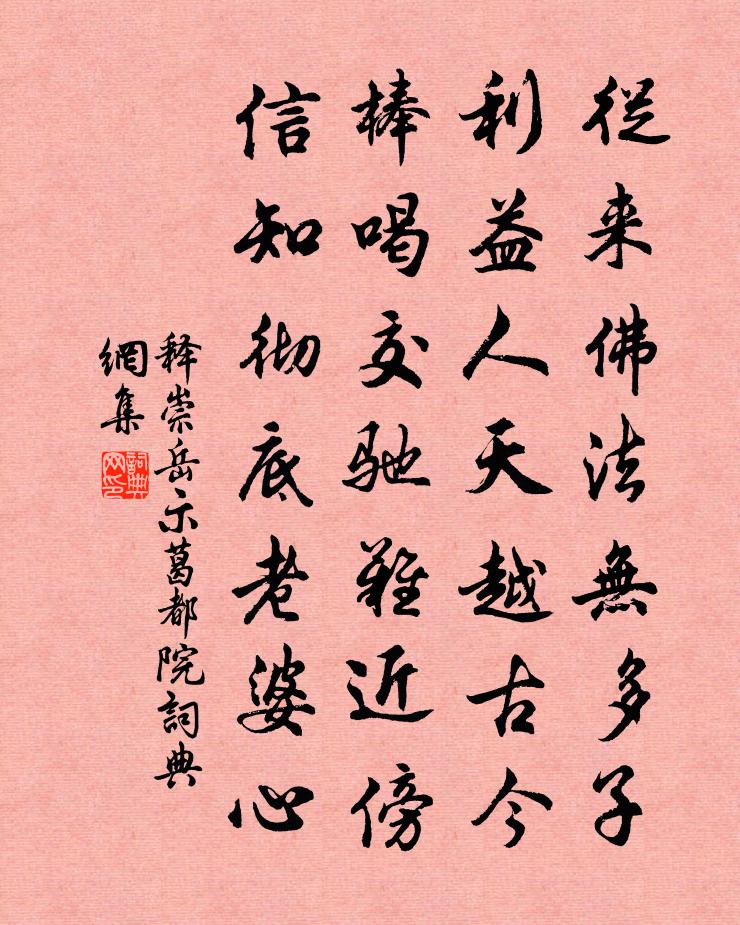 從来佛法無多子
利益人天越古今
棒喝交馳難近傍
信知彻底老婆心
释崇岳示葛都院詞典
網集
詞典
网印